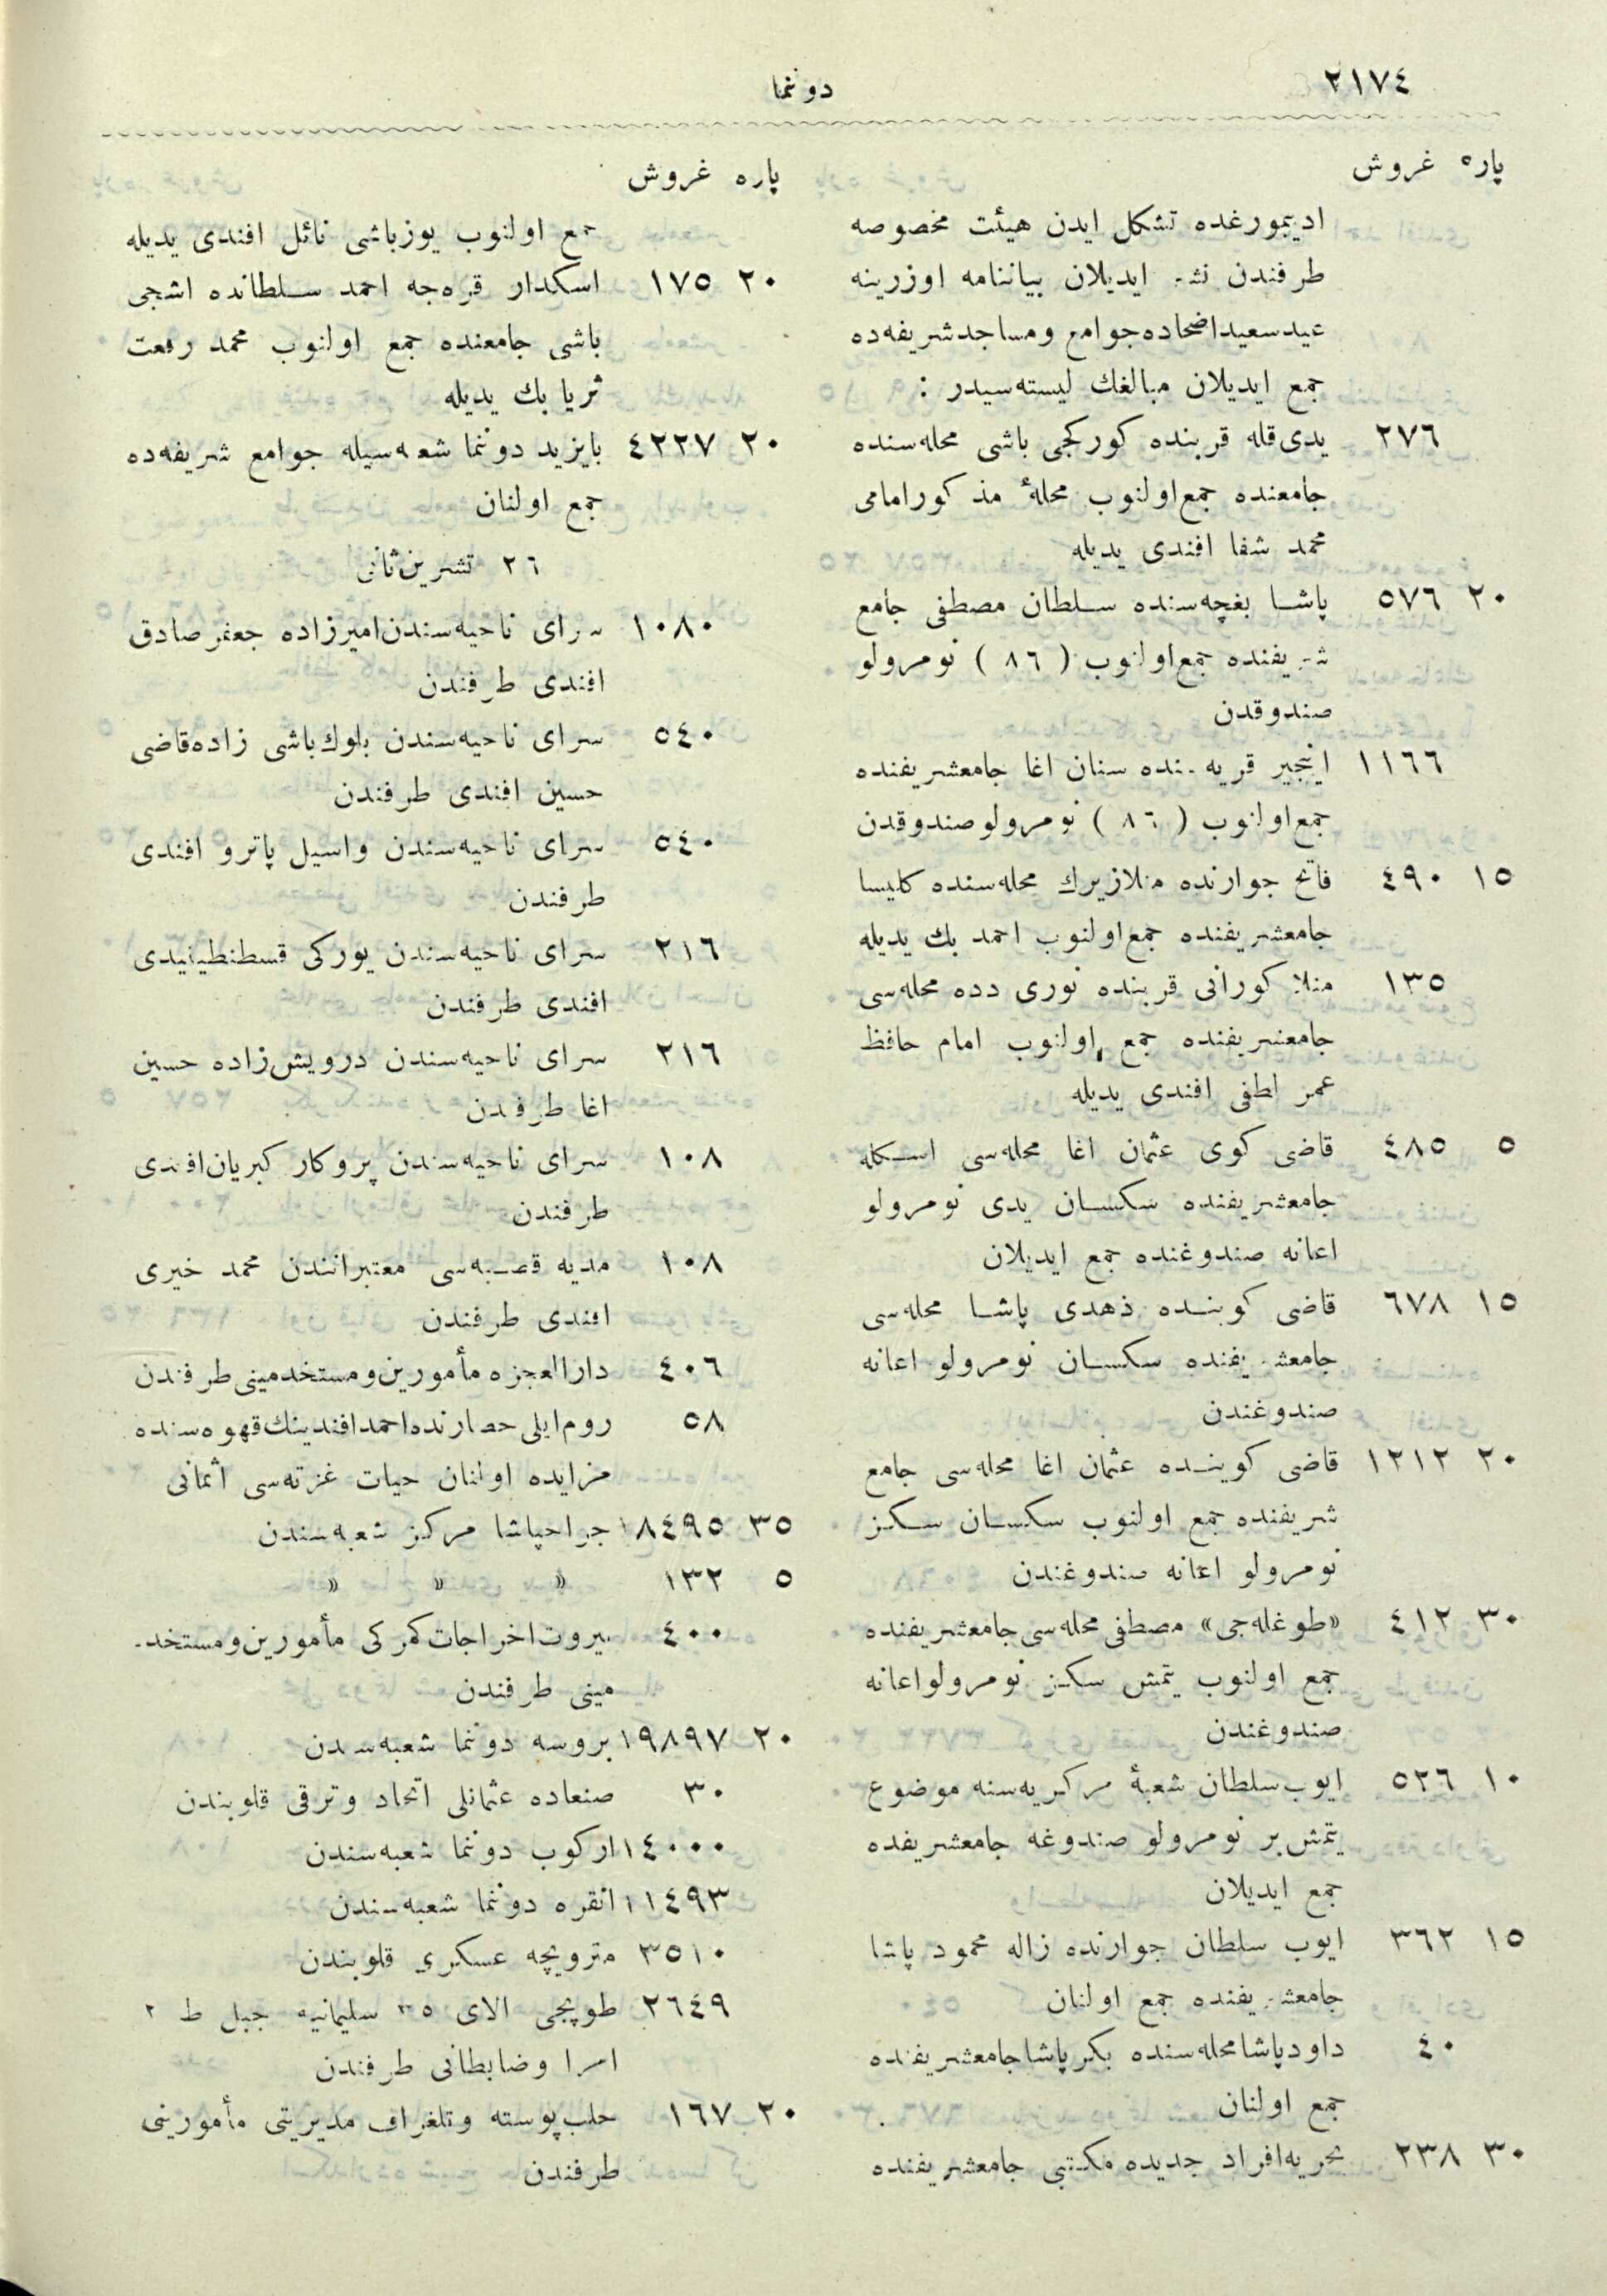 ٢١٧٤
دوننما
پاره غروش
اديمورغده تشكل ايدن هيئت مخصوصه
طرفندن نشر ايديلان بياننامه اوزرينه
عيد سعيد اضحاده جوامع ومساجد شريفه‌ده
جمع ايديلان مبالغك ليسته‌سيدر :
٢٧٦ يدى قله قربنده كوركجى باشى محله‌سنده
جامعنده جمع اولنوب محلهٔ مذكور امامى
محمد شفا افندى يديله
٢٠ ٥٧٦ پاشا بغچه‌سنده سلطان مصطفى جامع
شريفنده جمع اولنوب ( ٨٦ ) نومرولو
صندوقدن
١١٦٦ اينجير قريه‌سنده سنان اغا جامعشريفنده
جمع اولنوب ( ٨٦ ) نومرولو صندوقدن
١٥ ٤٩٠ فاتح جوارنده منلازيرك محله‌سنده كليسا
جامعشريفنده جمع اولنوب احمد بك يديله
١٣٥ منلا كورانى قربنده نورى دده محله‌سى
جامعشريفنده جمع اولنوب امام حافظ
عمر لطفى افندى يديله
٥ ٤٨٥ قاضى كوى عثمان اغا محله‌سى اسكله
جامعشريفنده سكسان يدى نومرولو
اعانه صندوغنده جمع ايديلان
١٥ ٦٧٨ قاضى كوينده ذهدى پاشا محله‌سى
جامعشريفنده سكسان نومرولو اعانه
صندوغندن
٢٠ ١٢١٢ قاضى كوينده عثمان اغا محله‌سى جامع
شريفنده جمع اولنوب سكسان سكز
نومرولو اعانه صندوغندن
٣٠ ٤١٢ «طوغله‌جى» مصطفى محله‌سى جامعشريفنده
جمع اولنوب يتمش سكز نومرولو اعانه
صندوغندن
١٠ ٥٢٦ ايوب سلطان شعبهٔ مركزيه‌سنه موضوع
يتمش بر نومرولو صندوغه جامعشريفده
جمع ايديلان
١٥ ٣٦٢ ايوب سلطان جوارنده زاله محمود پاشا
جامعشريفنده جمع اولنان
٤٠ داود پاشا محله‌سنده بكر پاشا جامعشريفنده
جمع اولنان
٣٠ ٢٣٨ بحريه افراد جديده مكتبى جامعشريفنده
پاره غروش
جمع اولنوب يوزباشى نائل افندى يديله
٢٠ ١٧٥ اسكدار قره‌جه احمد سلطانده اشجى
باشى جامعنده جمع اولنوب محمد رفعت
ثريا بك يديله
٢٠ ٤٢٢٧ بايزيد دوننما شعبه‌سيله جوامع شريفه‌ده
جمع اولنان
٢٦ تشرين ثانى
١٠٨٠ سراى ناحيه‌سندن اميرزاده جعفر صادق
افندى طرفندن
٥٤٠ سراى ناحيه‌سندن بلوك باشى زاده قاضى
حسين افندى طرفندن
٥٤٠ سراى ناحيه‌سندن واسيل پاترو افندى
طرفندن
٢١٦ سراى ناحيه‌سندن يوركى قسطنطينيدى
افندى طرفندن
٢١٦ سراى ناحيه‌سندن درويش‌زاده حسين
اغا طرفندن
١٠٨ سراى ناحيه‌سندن پروكار كبريان افندى
طرفندن
١٠٨ مديه قصبه‌سى معتبراننندن محمد خيرى
افندى طرفندن
٤٠٦ دارالعجزه مأمورين ومستخدمينى طرفندن
٥٨ روم ايلى حصارنده احمد افندينك قهوه‌سنده
مزايده اولنان حيات غزته‌سى اثمانى
٣٥ ١٨٤٩٥ جراحپاشا مركز شعبه‌سندن
٥ ١٣٢ » » »
٤٠٠ بيروت اخراجات كمركى مأمورين ومستخد-
مينى طرفندن
٢٠ ١٩٨٩٧ بروسه دوننما شعبه‌سندن
٣٠ صنعاده عثمانلى اتحاد وترقى قلوبندن
١٤٠٠٠ اركوب دوننما شعبه‌سندن
١١٤٩٣ انقره دوننما شعبه‌سندن
٣٥١٠ متروبچه عسكرى قلوبندن
٢٦٤٩ طوپجى الاى ٣٥ سليمانيه جبل ط ٢
امرا وضابطانى طرفندن
٢٠ ١٦٧ حلب پوسته وتلغراف مديريتى مأمورينى
طرفندن